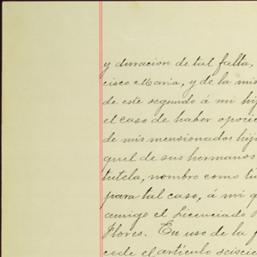 y duracion de tal falta,
cisco Maria, y de la mis
de este segundo á mi hij
el caso de haber oposic
de mis mencionados hijo
quel de sus hermanos
tutela, nombro como tu
para tal caso, á mi q
amigo el Licenciado
Flores. En uso de la f
cede el artículo seiscie